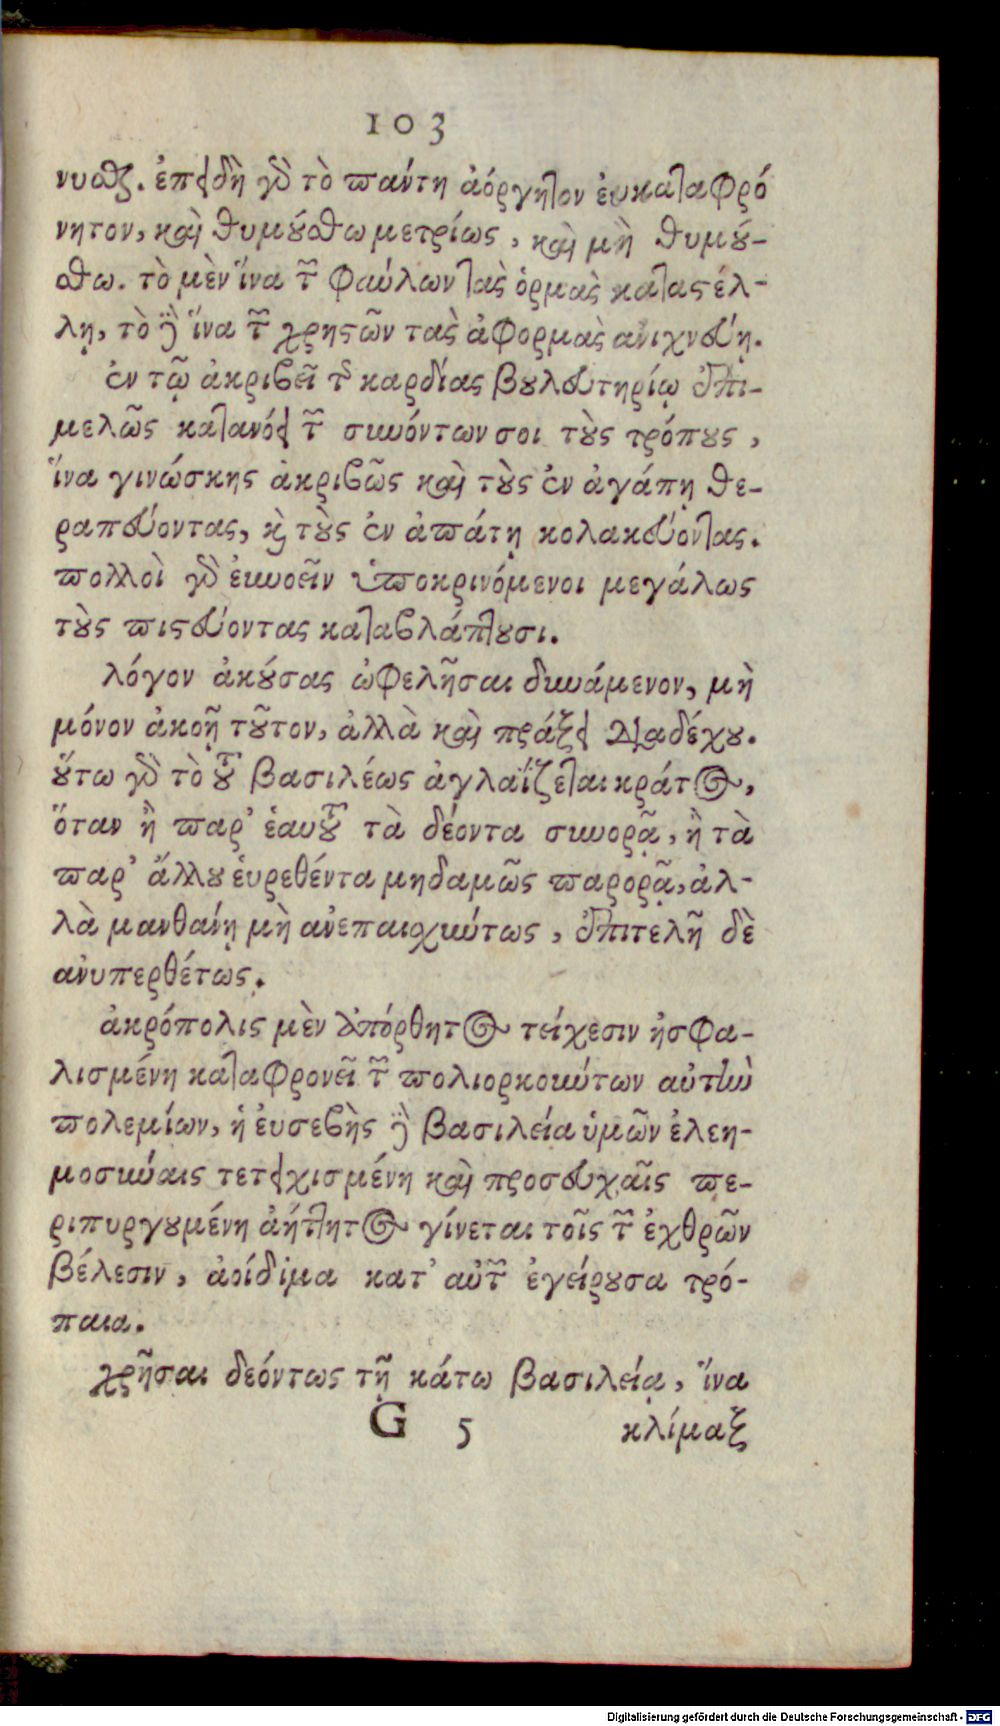 103
νυσθαι. ἐπειδὴ γὰρ τὸ πάντη ἀόργητον ἐυκαταφρό
νητον, καὶ θυμούσθω μετρίως, καὶ μὴ θυμού-
σθω. τὸ μὲν ἵνα τῶν φαύλων τὰς ὁρμὰς καταστέλ-
λῃ, τὸ δὲ ἵνα τῶν χρηστῶν τὰς ἀφορμὰς ανιχνεύῃ.
ἐν τῷ ἀκριβεῖ τῆς καρδίας βουλευτηρίῳ ἐπι-
μελῶς κατανόει τῶν συνόντων σοι τοὺς τρόπους,
ἵνα γινώσκης ἀκριβῶς καὶ τοὺς ἐν ἀγάπῃ θε-
ραπεύοντας, καὶ τοὺς ἐν ἀπάτῃ κολακεύοντας.
πολλοὶ γὰρ ἐυνοεῖν ὑποκρινόμενοι μεγάλως
τοὺς πιστεύοντας καταβλάπτουσι.
λόγον ἀκούσας ὠφελῆσαι δυνάμενον, μὴ
μόνον ἀκοῇ τοῦτον, ἀλλὰ καὶ πράξει διαδέχου.
οὕτω γὰρ τὸ τοῦ βασιλέως ἀγλαΐζεται κράτος,
ὅταν ἢ παρ' ἑαυτοῦ τὰ δέοντα συνορᾷ, ἢ τὰ
παρ' ἄλλου ἑυρεθέντα μηδαμῶς παρορᾷ, ἀλ-
λὰ μανθανίῃ μὴ ανεπαισχύντως, ἐπιτελῆ δὲ
ανυπερθέτως.
ἀκρόπολις μὲν ἀπόρθητος τείχεσιν ἠσφα-
λισμένη καταφρονεῖ τῶν πολιορκούντων αὐτὴν
πολεμίων, ἡ ἐυσεβὴς δὲ βασιλεία ὑμῶν ἐλεη-
μοσύναις τετειχισμένη καὶ προσευχαῖς πε-
ριπυργουμένη ἀήττητος γίνεται τοῖς τῶν ἐχθρῶν
βέλεσιν, ἀοίδιμα κατ' αὐτῶν ἐγείρουσα τρό-
παια.
χρῆσαι δεόντως τῇ κάτω βασιλείᾳ, ἵνα
G 5 κλίμαξ
Digitalisierung gefördert durch die Deutsche Forschungsgemeinschaft - DFG